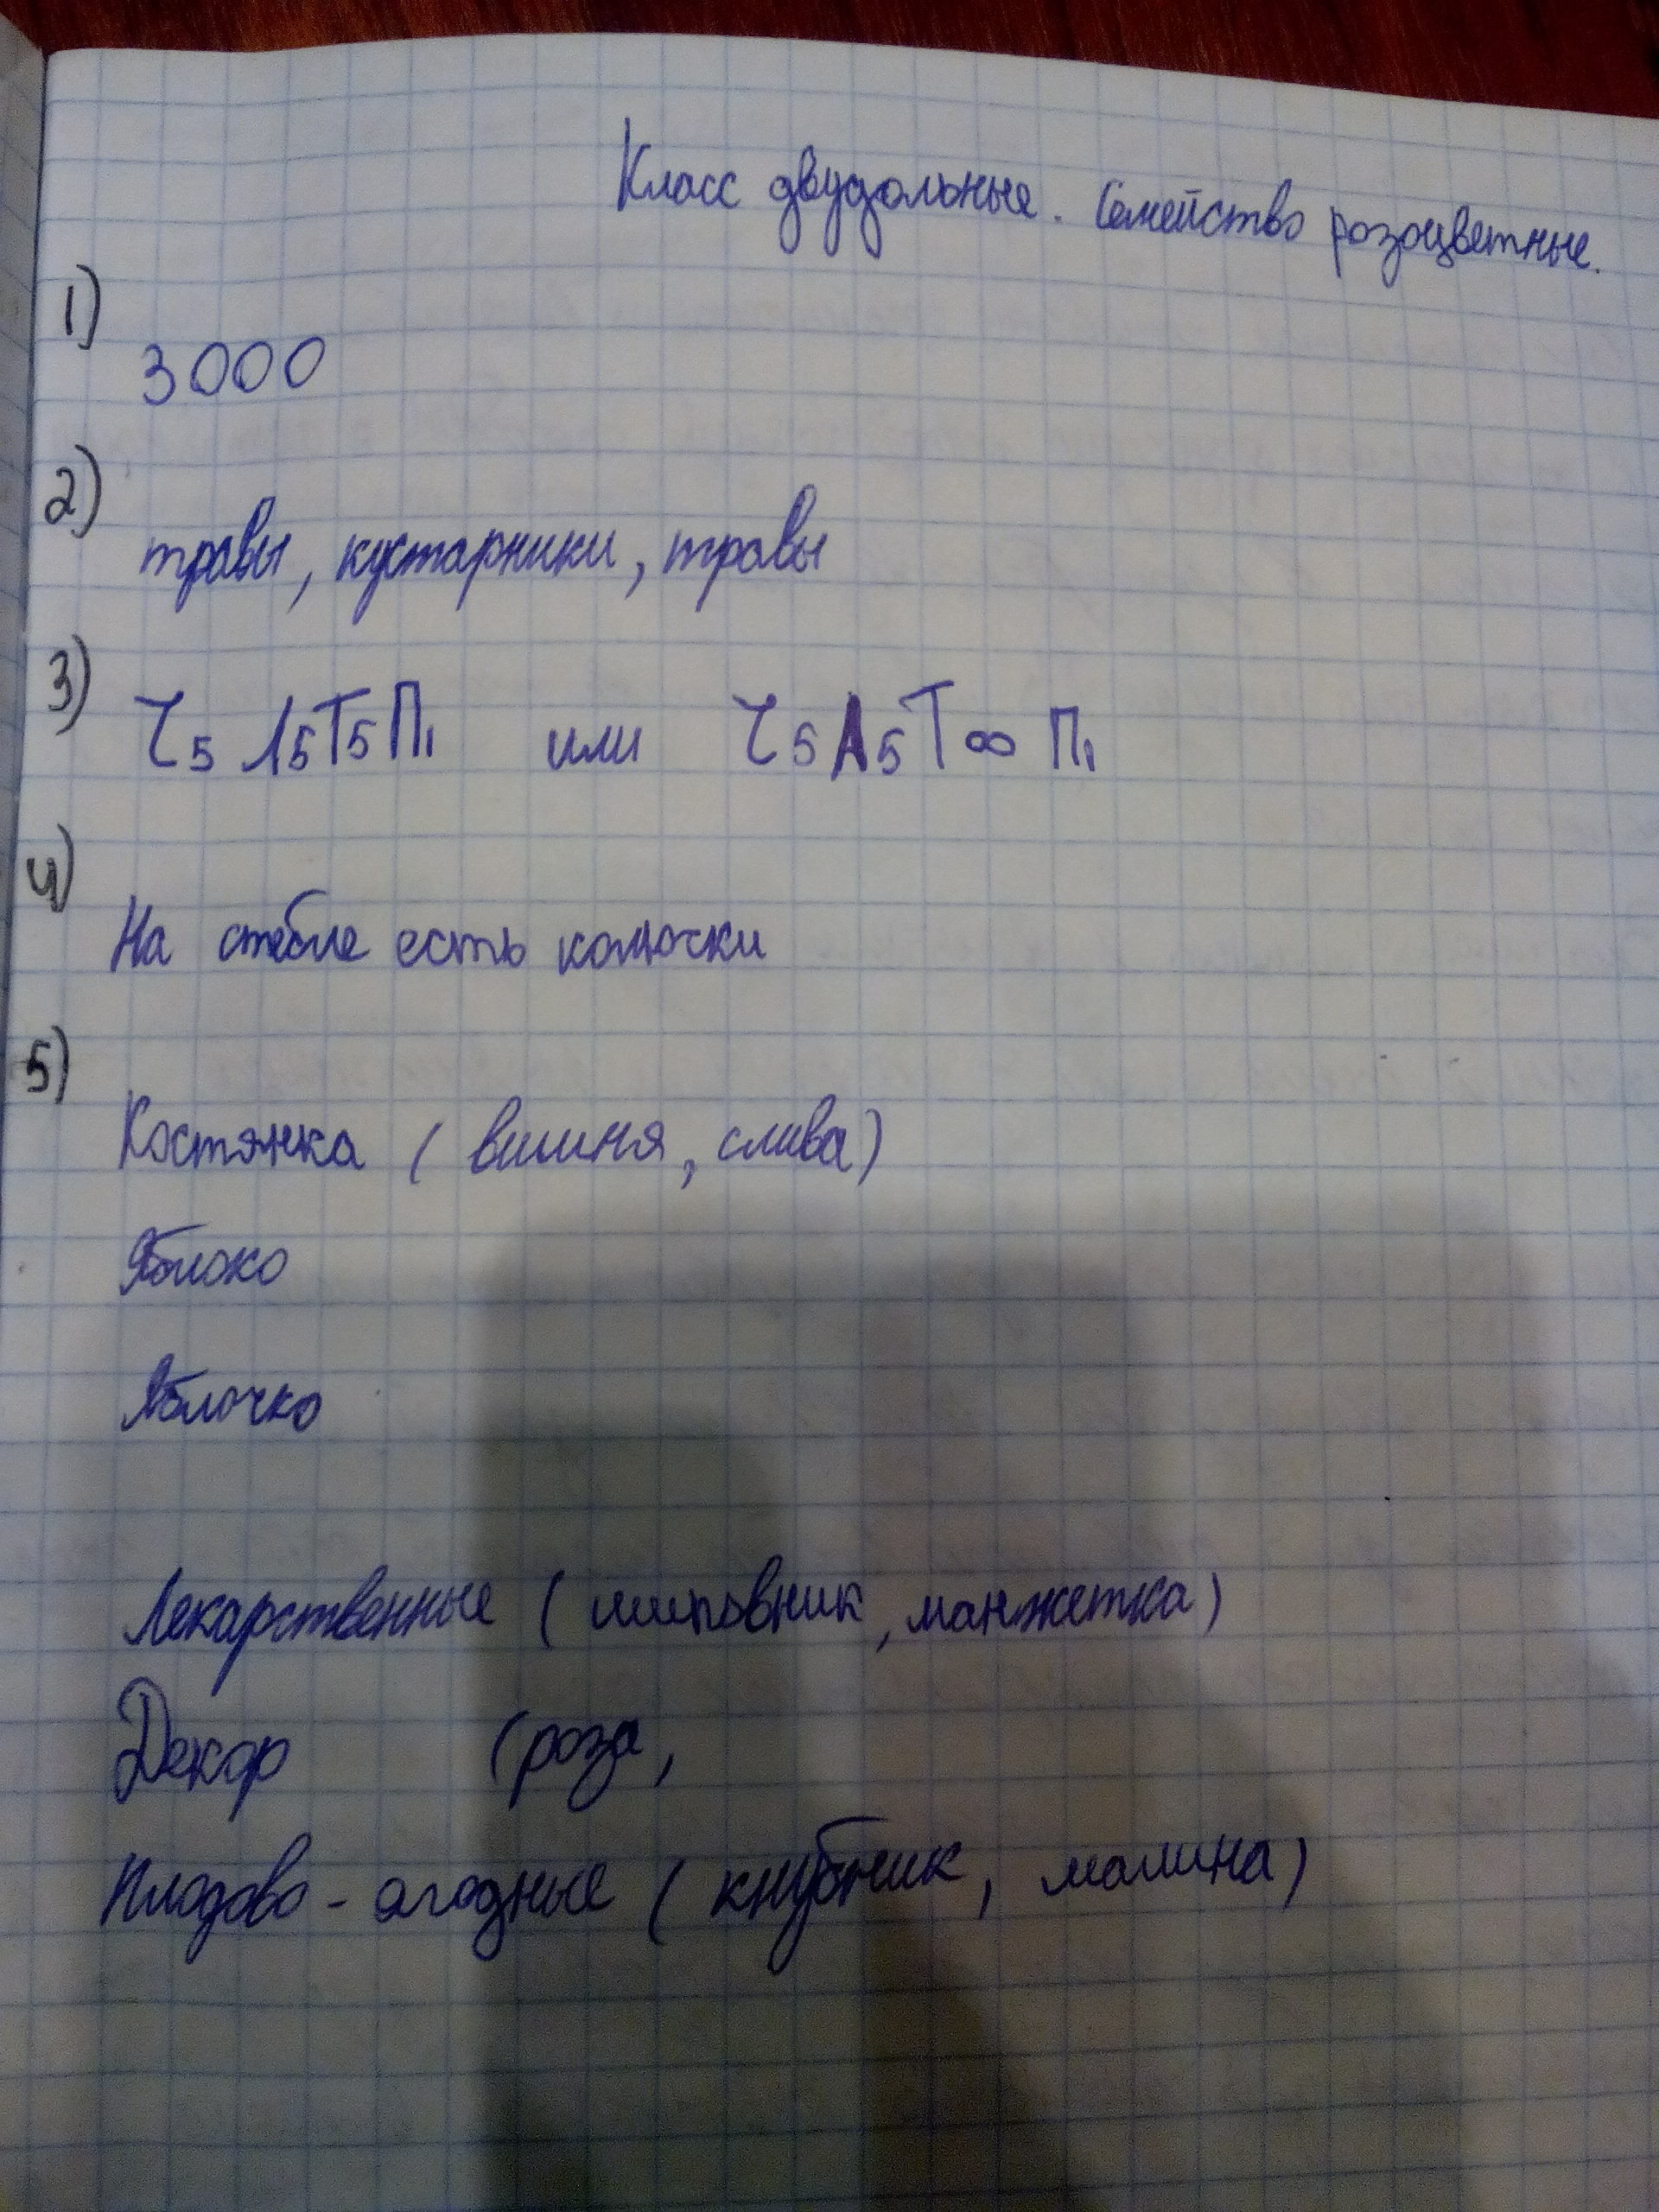 Класс двудольные. Семейство розоцветные.
1)
3000
2)
травы, кустарники, травы
3)
Ч5 Л5Т5П1 или Ч5Л5Т∞ П1
4)
На стебле есть колючки
5)
Костянка ( вишня, слива)
Яблоко
Яблочко
Лекарственные ( шиповник, манжетка)
Декор (роза,
Плодово - ягодные ( клубник, малина)